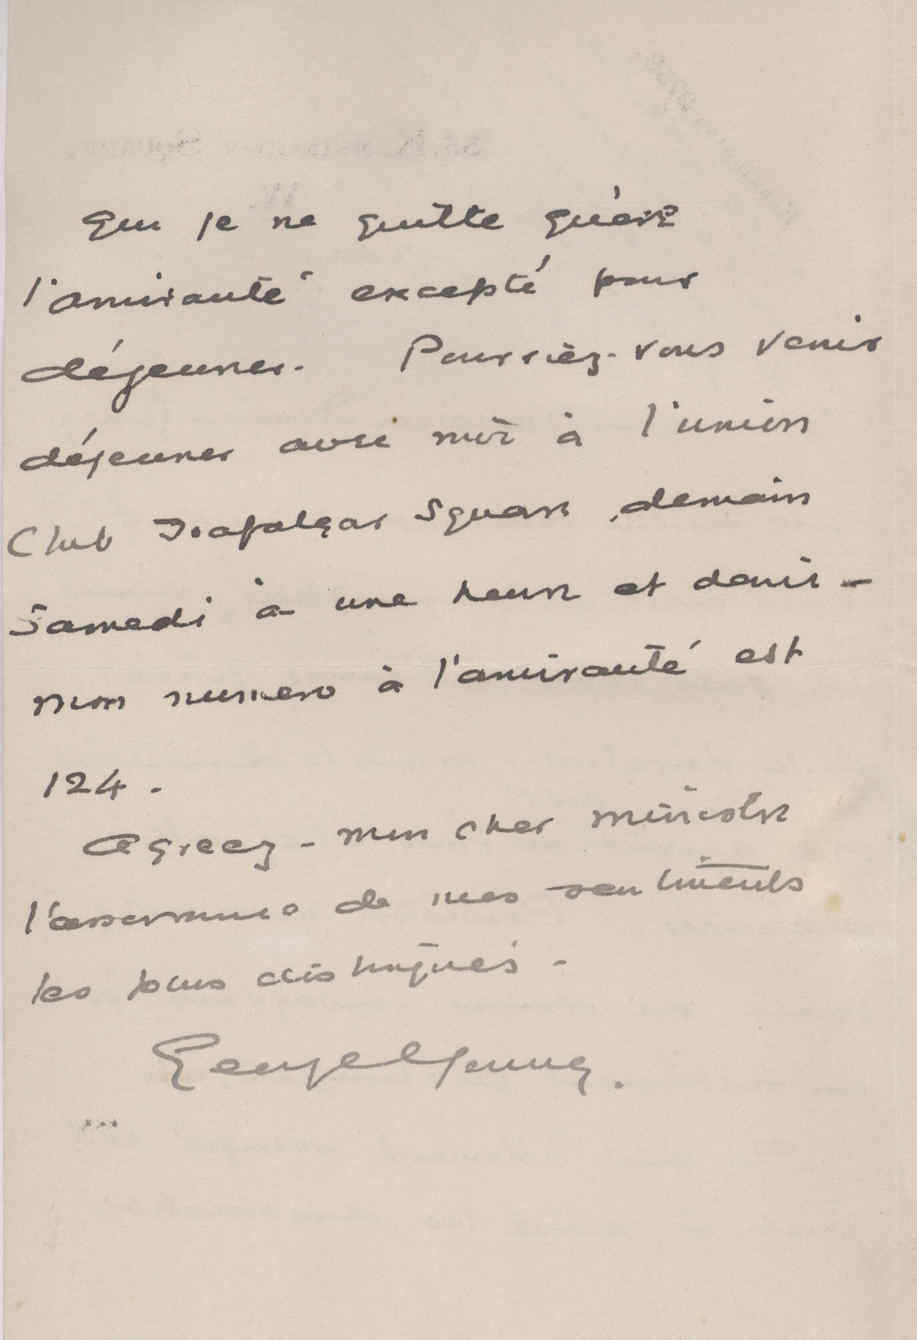 que je ne quitte guère
l'amirauté excepté pour
déjeuner. Pourriez-vous venir
déjeuner avec moi à l'union
Club Trafalgar Square, demain
Samedi à une heure et demie -
mon numero à l'amirauté est
124.
Agreez - mon cher ministre
l'assurance de mes sentiments
les plus distingués -
George Young.